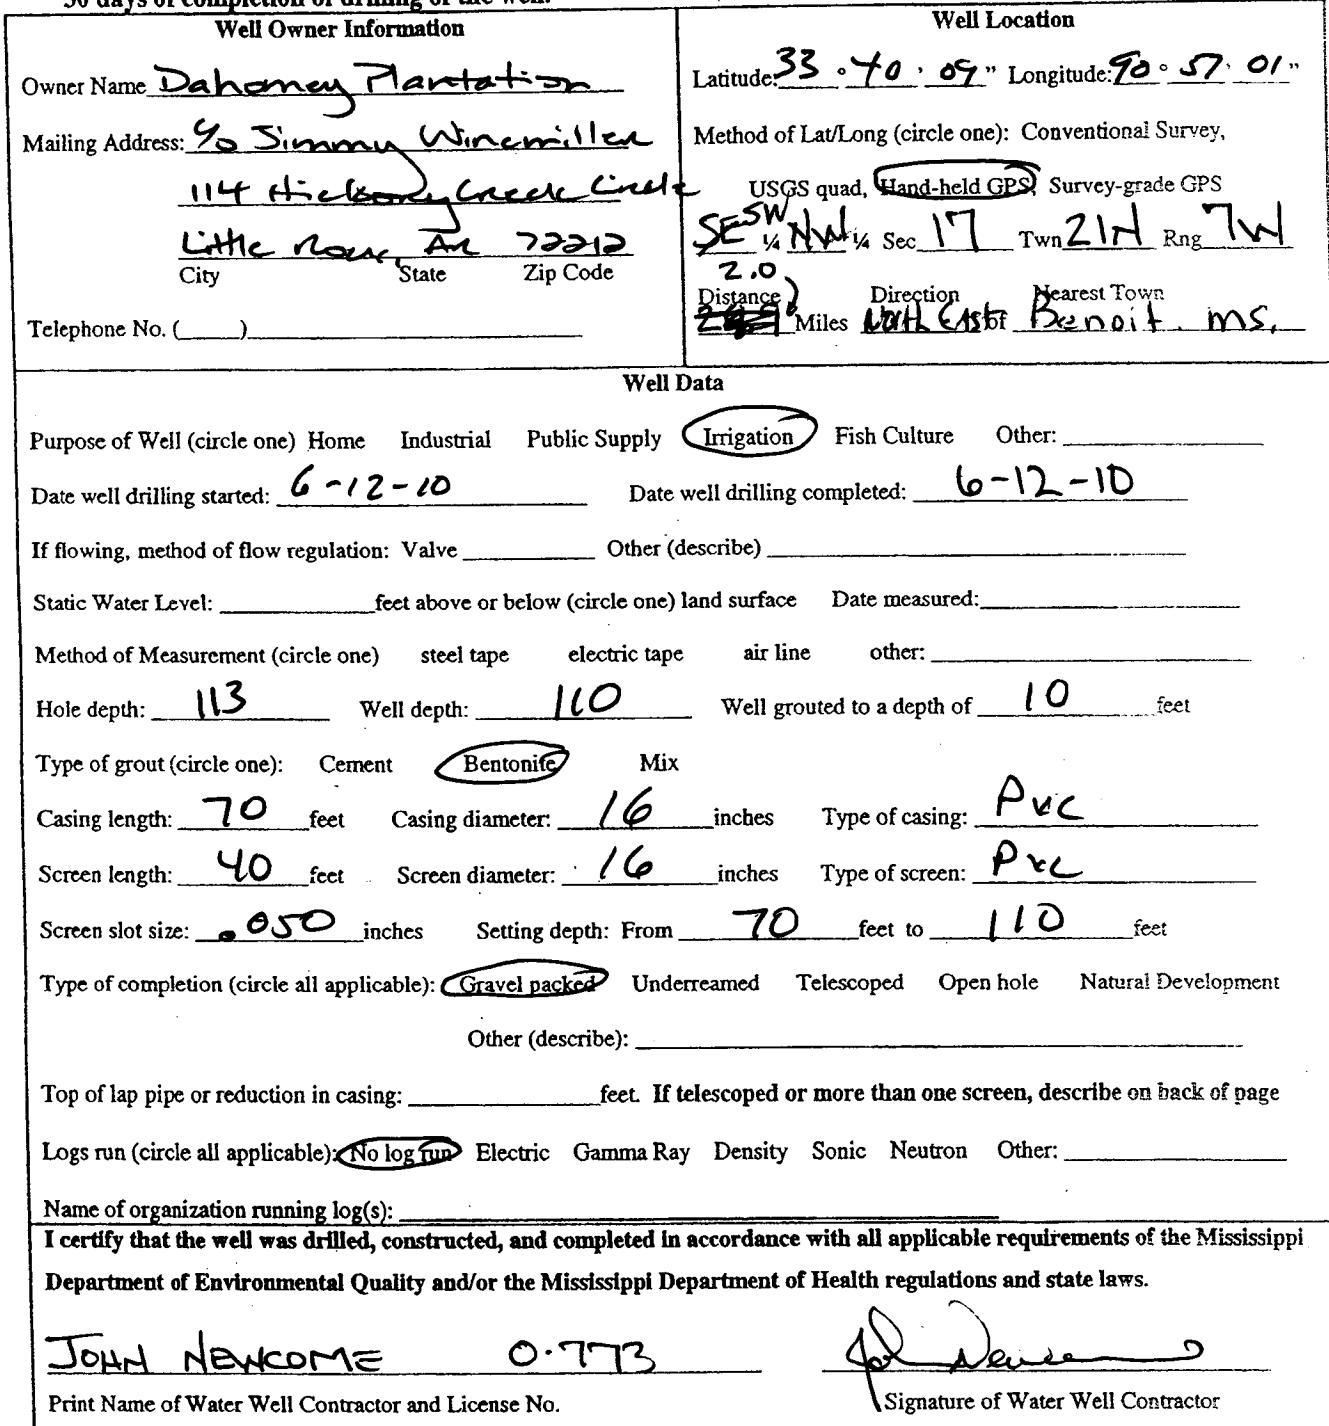 30 days of completion of drilling of the well.
Well Owner Information
Owner Name Dahomey Plantation
Mailing Address: c/o Jimmy Winemiller
114 Hickory Creek Circle
Little Rock, AR 72212
City State Zip Code
Telephone No. (____)
Well Location
Latitude: 33 ° 40 ' 09 " Longitude: 90 ° 57 ' 01 "
Method of Lat/Long (circle one): Conventional Survey,
USGS quad, Hand-held GPS, Survey-grade GPS
SE SW 1/4 NW 1/4 Sec 17 Twn 21N Rng 7W
2.0
Distance Direction Nearest Town
Miles North East of Benoit ms.
Well Data
Purpose of Well (circle one) Home Industrial Public Supply Irrigation Fish Culture Other:
Date well drilling started: 6-12-10 Date well drilling completed: 6-12-10
If flowing, method of flow regulation: Valve Other (describe)
Static Water Level: feet above or below (circle one) land surface Date measured:
Method of Measurement (circle one) steel tape electric tape air line other:
Hole depth: 113 Well depth: 110 Well grouted to a depth of 10 feet
Type of grout (circle one): Cement Bentonite Mix
Casing length: 70 feet Casing diameter: 16 inches Type of casing: PVC
Screen length: 40 feet Screen diameter: 16 inches Type of screen: PVC
Screen slot size: .050 inches Setting depth: From 70 feet to 110 feet
Type of completion (circle all applicable): Gravel packed Underreamed Telescoped Open hole Natural Development
Other (describe):
Top of lap pipe or reduction in casing: feet. If telescoped or more than one screen, describe on back of page
Logs run (circle all applicable): No log run Electric Gamma Ray Density Sonic Neutron Other:
Name of organization running log(s):
I certify that the well was drilled, constructed, and completed in accordance with all applicable requirements of the Mississippi
Department of Environmental Quality and/or the Mississippi Department of Health regulations and state laws.
JOHN NEWCOME 0-773
John Newcome
Print Name of Water Well Contractor and License No.
Signature of Water Well Contractor